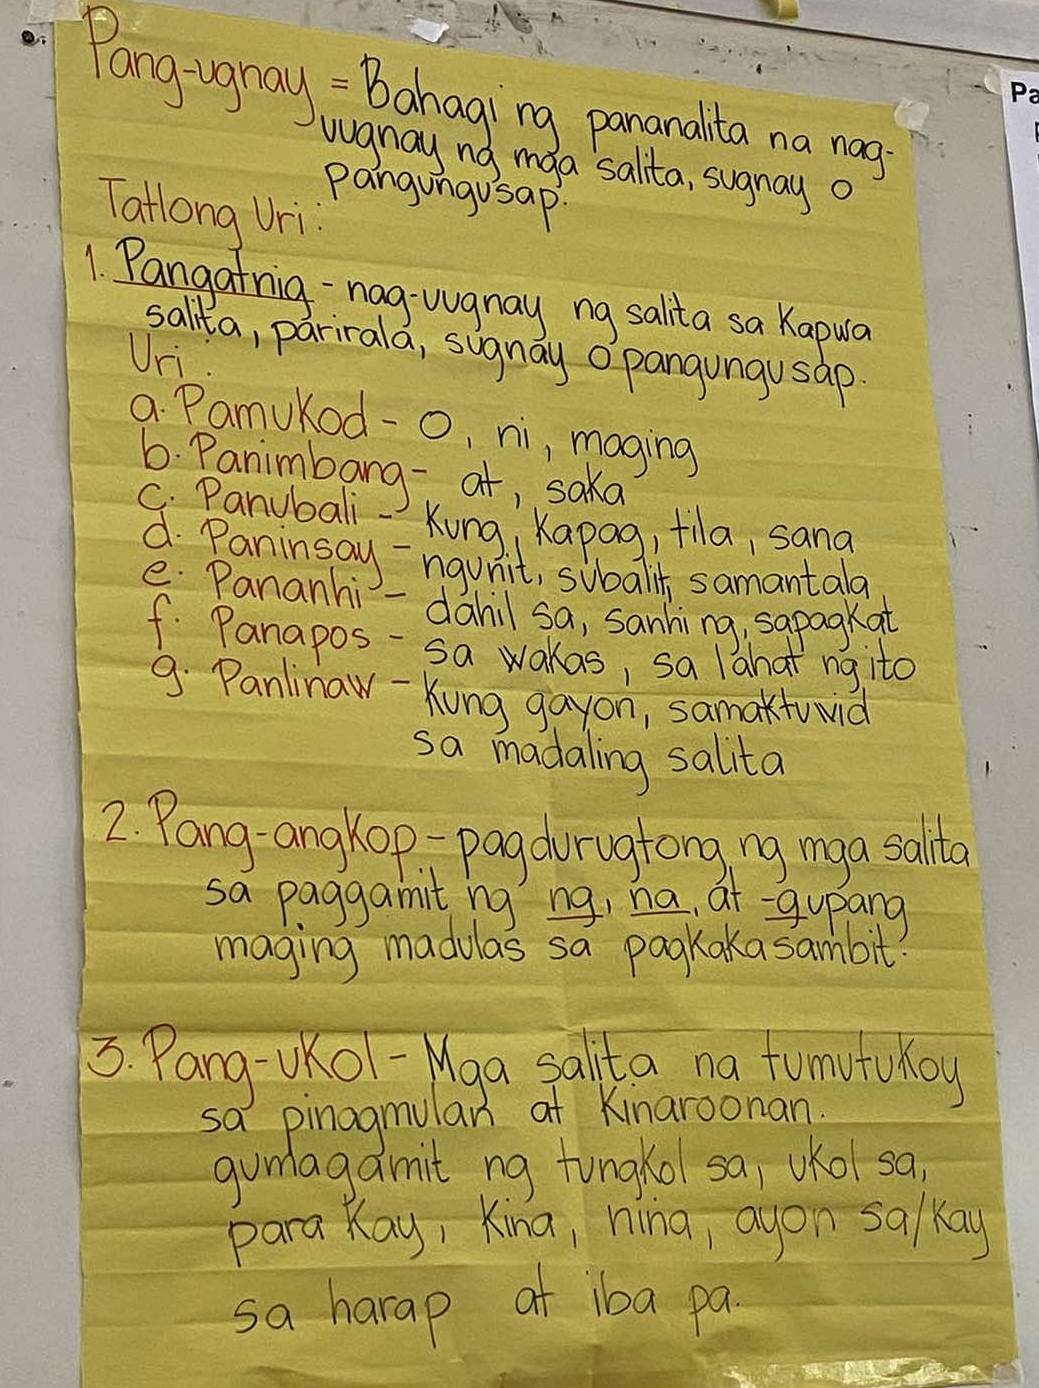 Pang-ugnay = Bahagi ng pananalita na nag-
uugnay ng mga salita, sugnay o
pangungusap.
Tatlong Uri:
1. Pangatnig - nag-uugnay ng salita sa kapwa
salita, parirala, sugnay o pangungusap.
Uri:
a. Pamukod - O, ni, maging
b. Panimbang - at, saka
c. Panubali - kung, kapag, tila, sana
d. Paninsay - ngunit, subalit, samantala
e. Pananhi - dahil sa, sanhi ng, sapagkat
f. Panapos - sa wakas, sa lahat ng ito
g. Panlinaw - kung gayon, samaktuwid
sa madaling salita
2. Pang-angkop - pagdurugtong ng mga salita
sa paggamit ng ng, na, at -g upang
maging madulas sa pagkakasambit.
3. Pang-ukol - Mga salita na tumutukoy
sa pinagmulan at kinaroonan.
gumagamit ng tungkol sa, ukol sa,
para kay, kina, nina, ayon sa/kay
sa harap at iba pa.
Pa